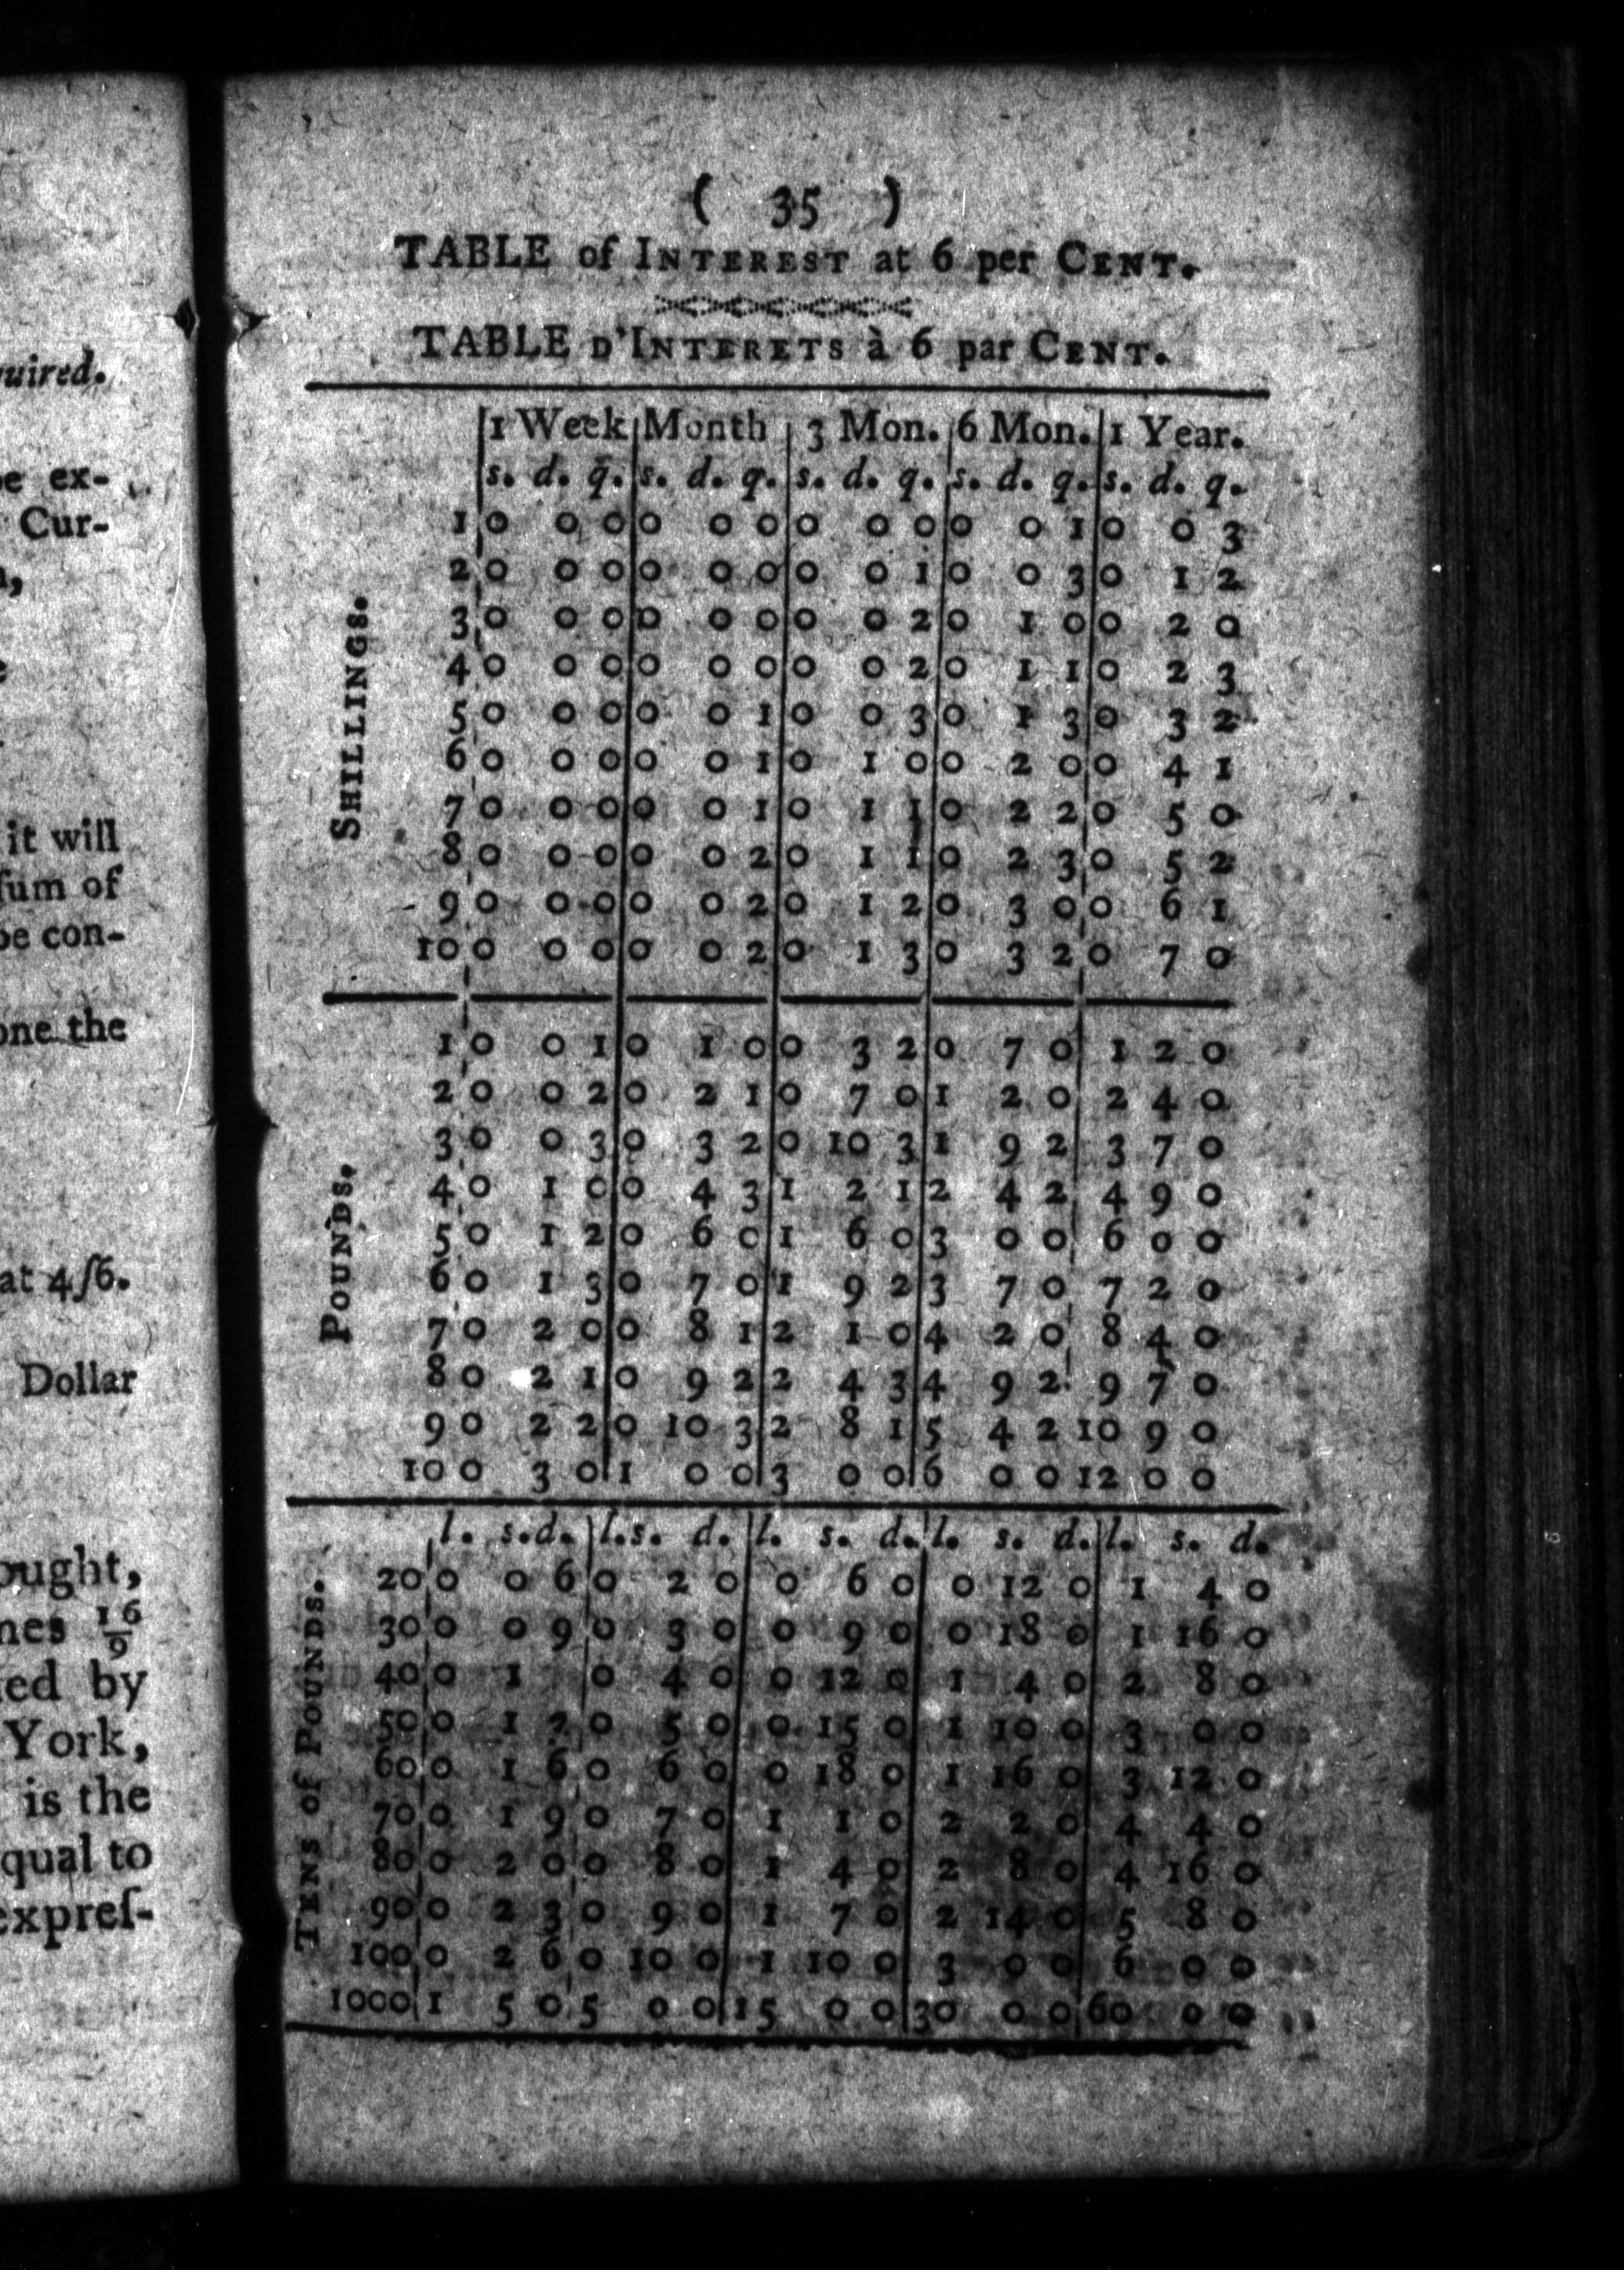 uired.
be ex-
Cur-
it will
ſum of
be con-
one the
at 4ſ6.
Dollar
ought,
16
9
by
York,
is the
qual to
expreſ-
( 35 )
TABLE of INTEREST at 6 per CENT.
TABLE D'INTERETS à 6 par CENT.
1 Week Month 3 Mon. 6 Mon. 1 Year.
s. d. q. s. d. q. s. d. q. s. d. q. s. d. q.
SHILLINGS.
1 0 0 0 0 0 0 0 0 0 0 0 1 0 0 3
2 0 0 0 0 0 0 0 0 1 0 0 3 0 1 2
3 0 0 0 0 0 0 0 0 2 0 1 0 0 2 0
4 0 0 0 0 0 0 0 0 2 0 1 1 0 2 3
5 0 0 0 0 0 1 0 0 3 0 1 3 0 3 2
6 0 0 0 0 0 1 0 1 0 0 2 0 0 4 1
7 0 0 0 0 0 1 0 1 1 0 2 2 0 5 0
8 0 0 0 0 0 2 0 1 1 0 2 3 0 5 2
9 0 0 0 0 0 2 0 1 2 0 3 0 0 6 1
10 0 0 0 0 0 2 0 1 3 0 3 2 0 7 0
POUNDS.
1 0 0 1 0 1 0 0 3 2 0 7 0 1 2 0
2 0 0 2 0 2 1 0 7 0 1 2 0 2 4 0
3 0 0 3 0 3 2 0 10 3 1 9 2 3 7 0
4 0 1 0 0 4 3 1 2 1 2 4 2 4 9 0
5 0 1 2 0 6 0 1 6 0 3 0 0 6 0 0
6 0 1 3 0 7 0 1 9 2 3 7 0 7 2 0
7 0 2 0 0 8 1 2 1 0 4 2 0 8 4 0
8 0 2 1 0 9 2 2 4 3 4 9 2 9 7 0
9 0 2 2 0 10 3 2 8 1 5 4 2 10 9 0
10 0 3 0 1 0 0 3 0 0 6 0 0 12 0 0
l. s. d. l. s. d. l. s. d. l. s. d. l. s. d.
TENS of POUNDS.
20 0 0 6 0 2 0 0 6 0 0 12 0 1 4 0
30 0 0 9 0 3 0 0 9 0 0 18 0 1 16 0
40 0 1 0 4 0 0 12 0 1 4 0 2 8 0
50 0 1 0 5 0 0 15 0 1 10 0 3 0 0
60 0 1 6 0 6 0 0 18 0 1 16 0 3 12 0
70 0 1 9 0 7 0 1 1 0 2 2 0 4 4 0
80 0 2 0 0 8 0 1 4 0 2 8 0 4 16 0
90 0 2 3 0 9 0 1 7 0 2 14 0 5 8 0
100 0 2 6 0 10 0 1 10 0 3 0 0 6 0 0
1000 1 5 0 5 0 0 15 0 0 30 0 0 60 0 0